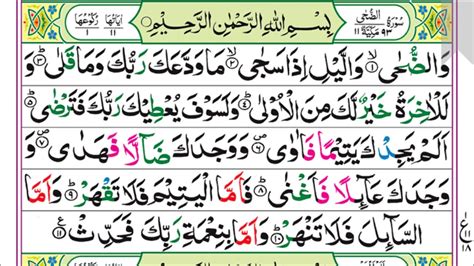 سُوْرَةُ الضُّحٰى ٩٣ مَكِّيَّةٌ ١١
بِسْمِ اللّٰهِ الرَّحْمٰنِ الرَّحِيْمِ
اٰيَاتُهَا ١١ رُكُوْعُهَا ١
وَالضُّحٰى ۙ﴿١﴾ وَالَّيْلِ اِذَا سَجٰى ۙ﴿٢﴾ مَا وَدَّعَكَ رَبُّكَ وَمَا قَلٰى ؕ﴿٣﴾ وَ
لَلْاٰخِرَةُ خَيْرٌ لَّكَ مِنَ الْاُوْلٰى ؕ﴿٤﴾ وَلَسَوْفَ يُعْطِيْكَ رَبُّكَ فَتَرْضٰى ؕ﴿٥﴾
اَلَمْ يَجِدْكَ يَتِيْمًا فَاٰوٰى ۪﴿٦﴾ وَوَجَدَكَ ضَآلًّا فَهَدٰى ۪﴿٧﴾ وَ
وَجَدَكَ عَآئِلًا فَاَغْنٰى ؕ﴿٨﴾ فَاَمَّا الْيَتِيْمَ فَلَا تَقْهَرْ ؕ﴿٩﴾ وَاَمَّا
السَّآئِلَ فَلَا تَنْهَرْ ؕ﴿١٠﴾ وَاَمَّا بِنِعْمَةِ رَبِّكَ فَحَدِّثْ ﴿١١﴾
ع ١١ ١٨